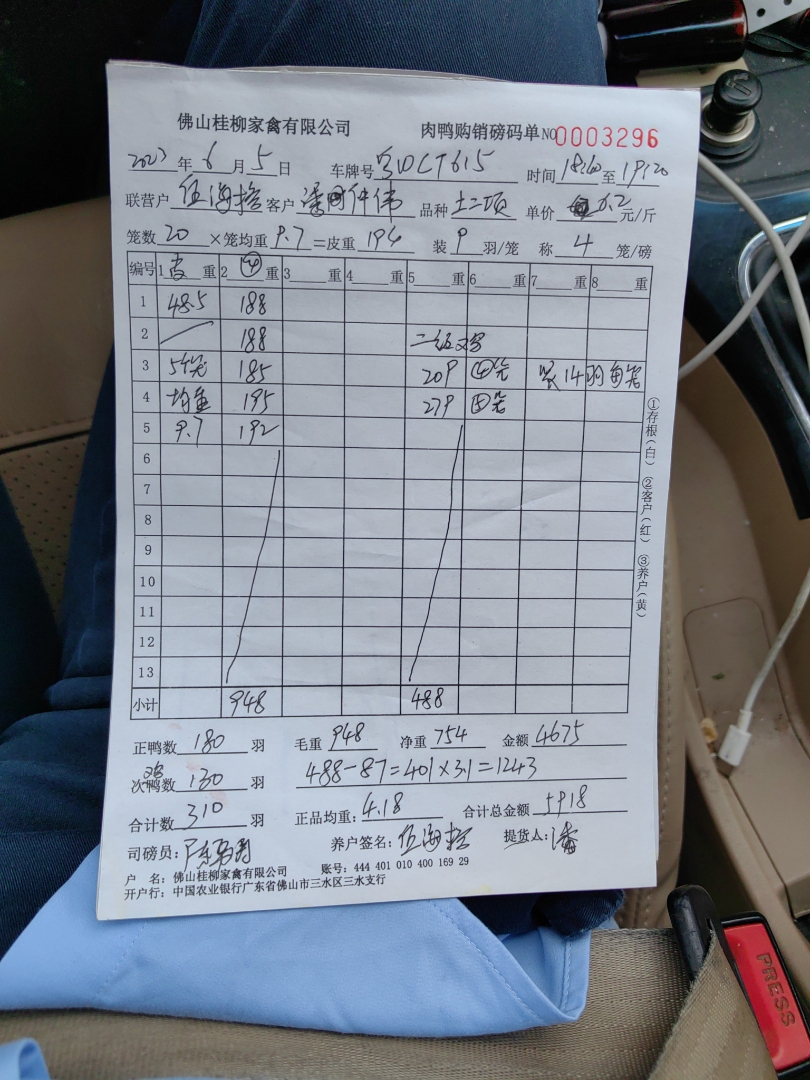 佛山桂柳家禽有限公司 肉鸭购销磅码单 NO 0003296
2023年6月5日 车牌号 DCT615 时间 18:40 至 19:20
联营户 伍海 客户 伟 品种 土二项 单价 6.2 元/斤
笼数 20 ×笼均重 9.7 =皮重 194 装 9 羽/笼 称 4 笼/磅
编号 1 皮 重 2 ④ 重 3 重 4 重 5 重 6 重 7 重 8 重
1 48.5 188
2 188 二级鸡
3 5笼 185 209 ④笼 装14羽每笼
4 均重 195 279 ⑤笼
5 9.7 192
6
7
8
9
10
11
12
13
小计 948 488
正鸭数 180 羽 毛重 948 净重 754 金额 4675
次鸭数 鸡 130 羽 488-87=401×3.1=1243
合计数 310 羽 正品均重: 4.18 合计总金额 5918
司磅员: 养户签名: 伍海 提货人: 潘
户 名: 佛山桂柳家禽有限公司 账号: 444 401 010 400 169 29
开户行: 中国农业银行广东省佛山市三水区三水支行
①存根(白) ②客户(红) ③养户(黄)
PRESS